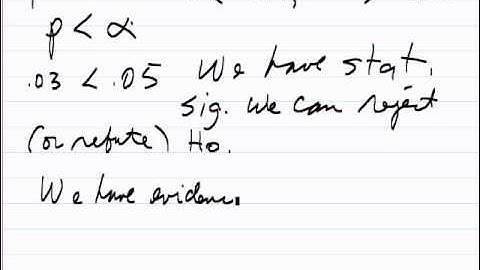 p < α
.03 < .05 We have stat.
sig. We can reject
(or refute) Ho.
We have evidenc